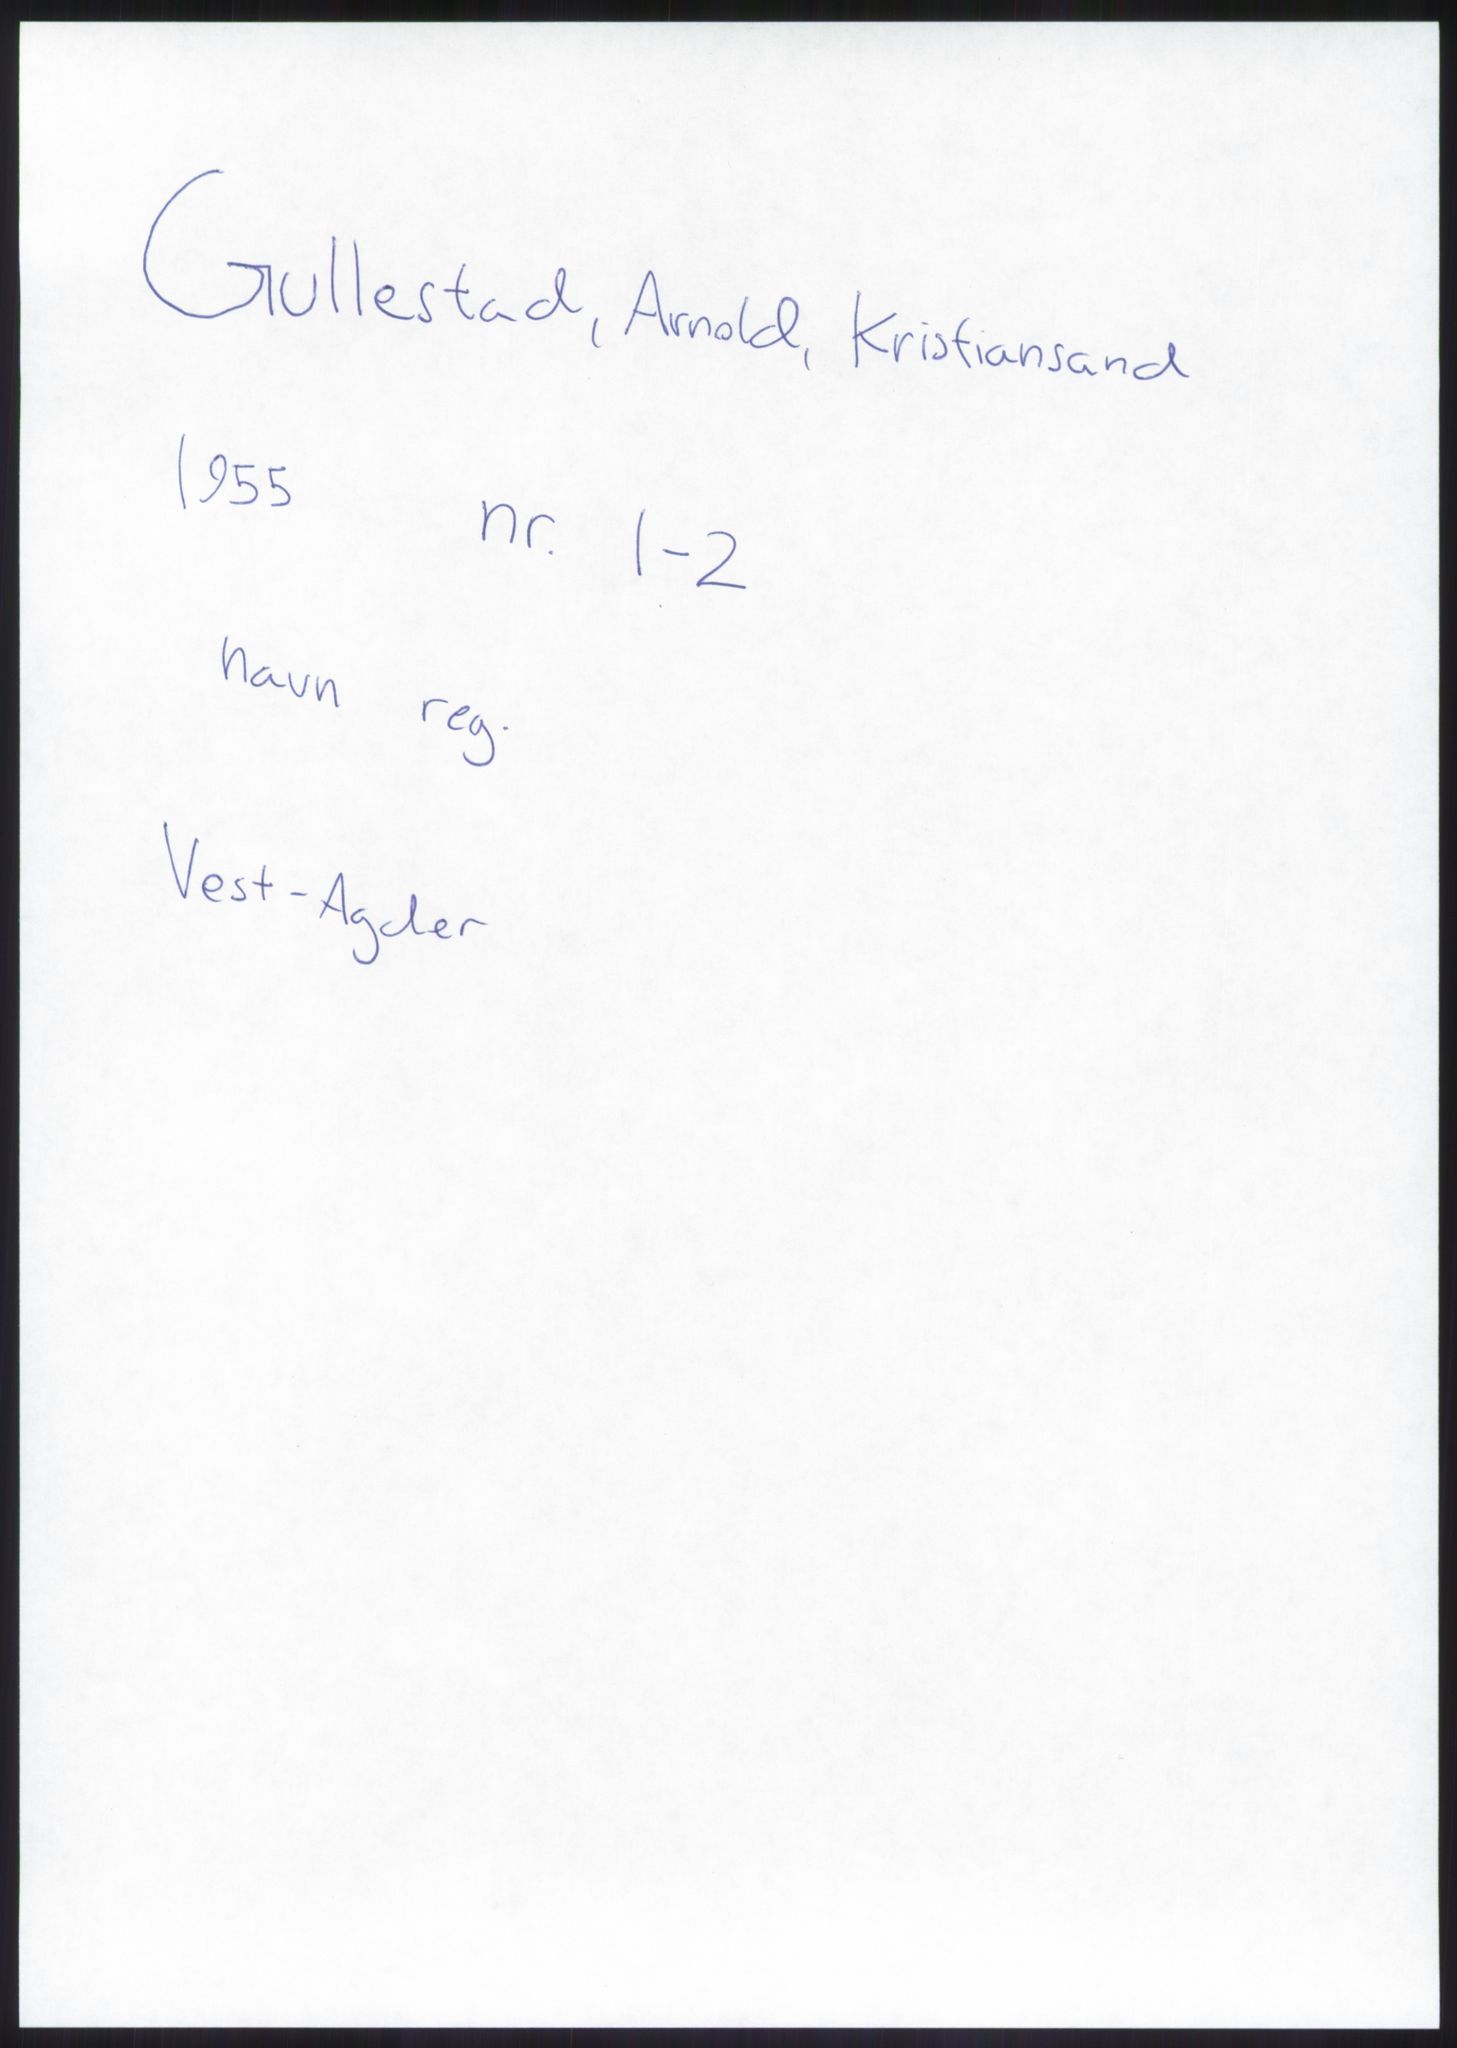 Gullestad, Arnold, Kristiansand
1955 nr. 1-2
navn reg.
Vest-Agder